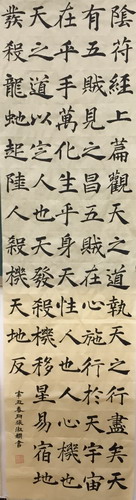 陰符經上篇觀天之道執天之行盡矣天
有五賊見之昌五賊在心施行於天宇宙
在乎手萬化生乎身天性人也人心機也
天之道以定人也天發殺機移星易宿地
發殺龍蛇起陸人發殺機天地反